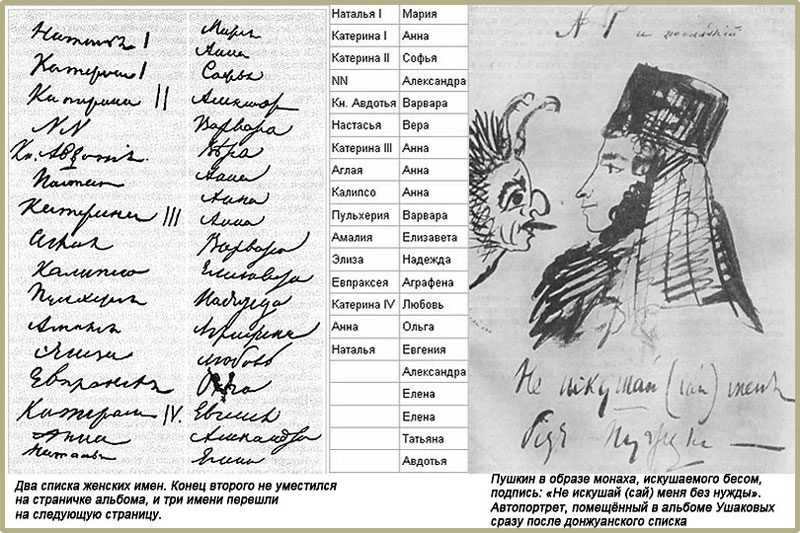 Наталья I
Катерина I
Катерина II
NN
Кн. Авдотья
Настасья
Катерина III
Аглая
Калипсо
Пульхерия
Амалия
Элиза
Евпраксея
Катерина IV
Анна
Наталья
Марья
Анна
Софья
Александра
Варвара
Вера
Анна
Анна
Анна
Варвара
Елизавета
Надежда
Аграфена
Любовь
Ольга
Евгения
Александра
Елена
Наталья I Мария
Катерина I Анна
Катерина II Софья
NN Александра
Кн. Авдотья Варвара
Настасья Вера
Катерина III Анна
Аглая Анна
Калипсо Анна
Пульхерия Варвара
Амалия Елизавета
Элиза Надежда
Евпраксея Аграфена
Катерина IV Любовь
Анна Ольга
Наталья Евгения
Александра
Елена
Елена
Татьяна
Авдотья
и последній
Не искушай (сай) меня
без нужды
Два списка женских имен. Конец второго не уместился
на страничке альбома, и три имени перешли
на следующую страницу.
Пушкин в образе монаха, искушаемого бесом,
подпись: «Не искушай (сай) меня без нужды».
Автопортрет, помещённый в альбоме Ушаковых
сразу после донжуанского списка